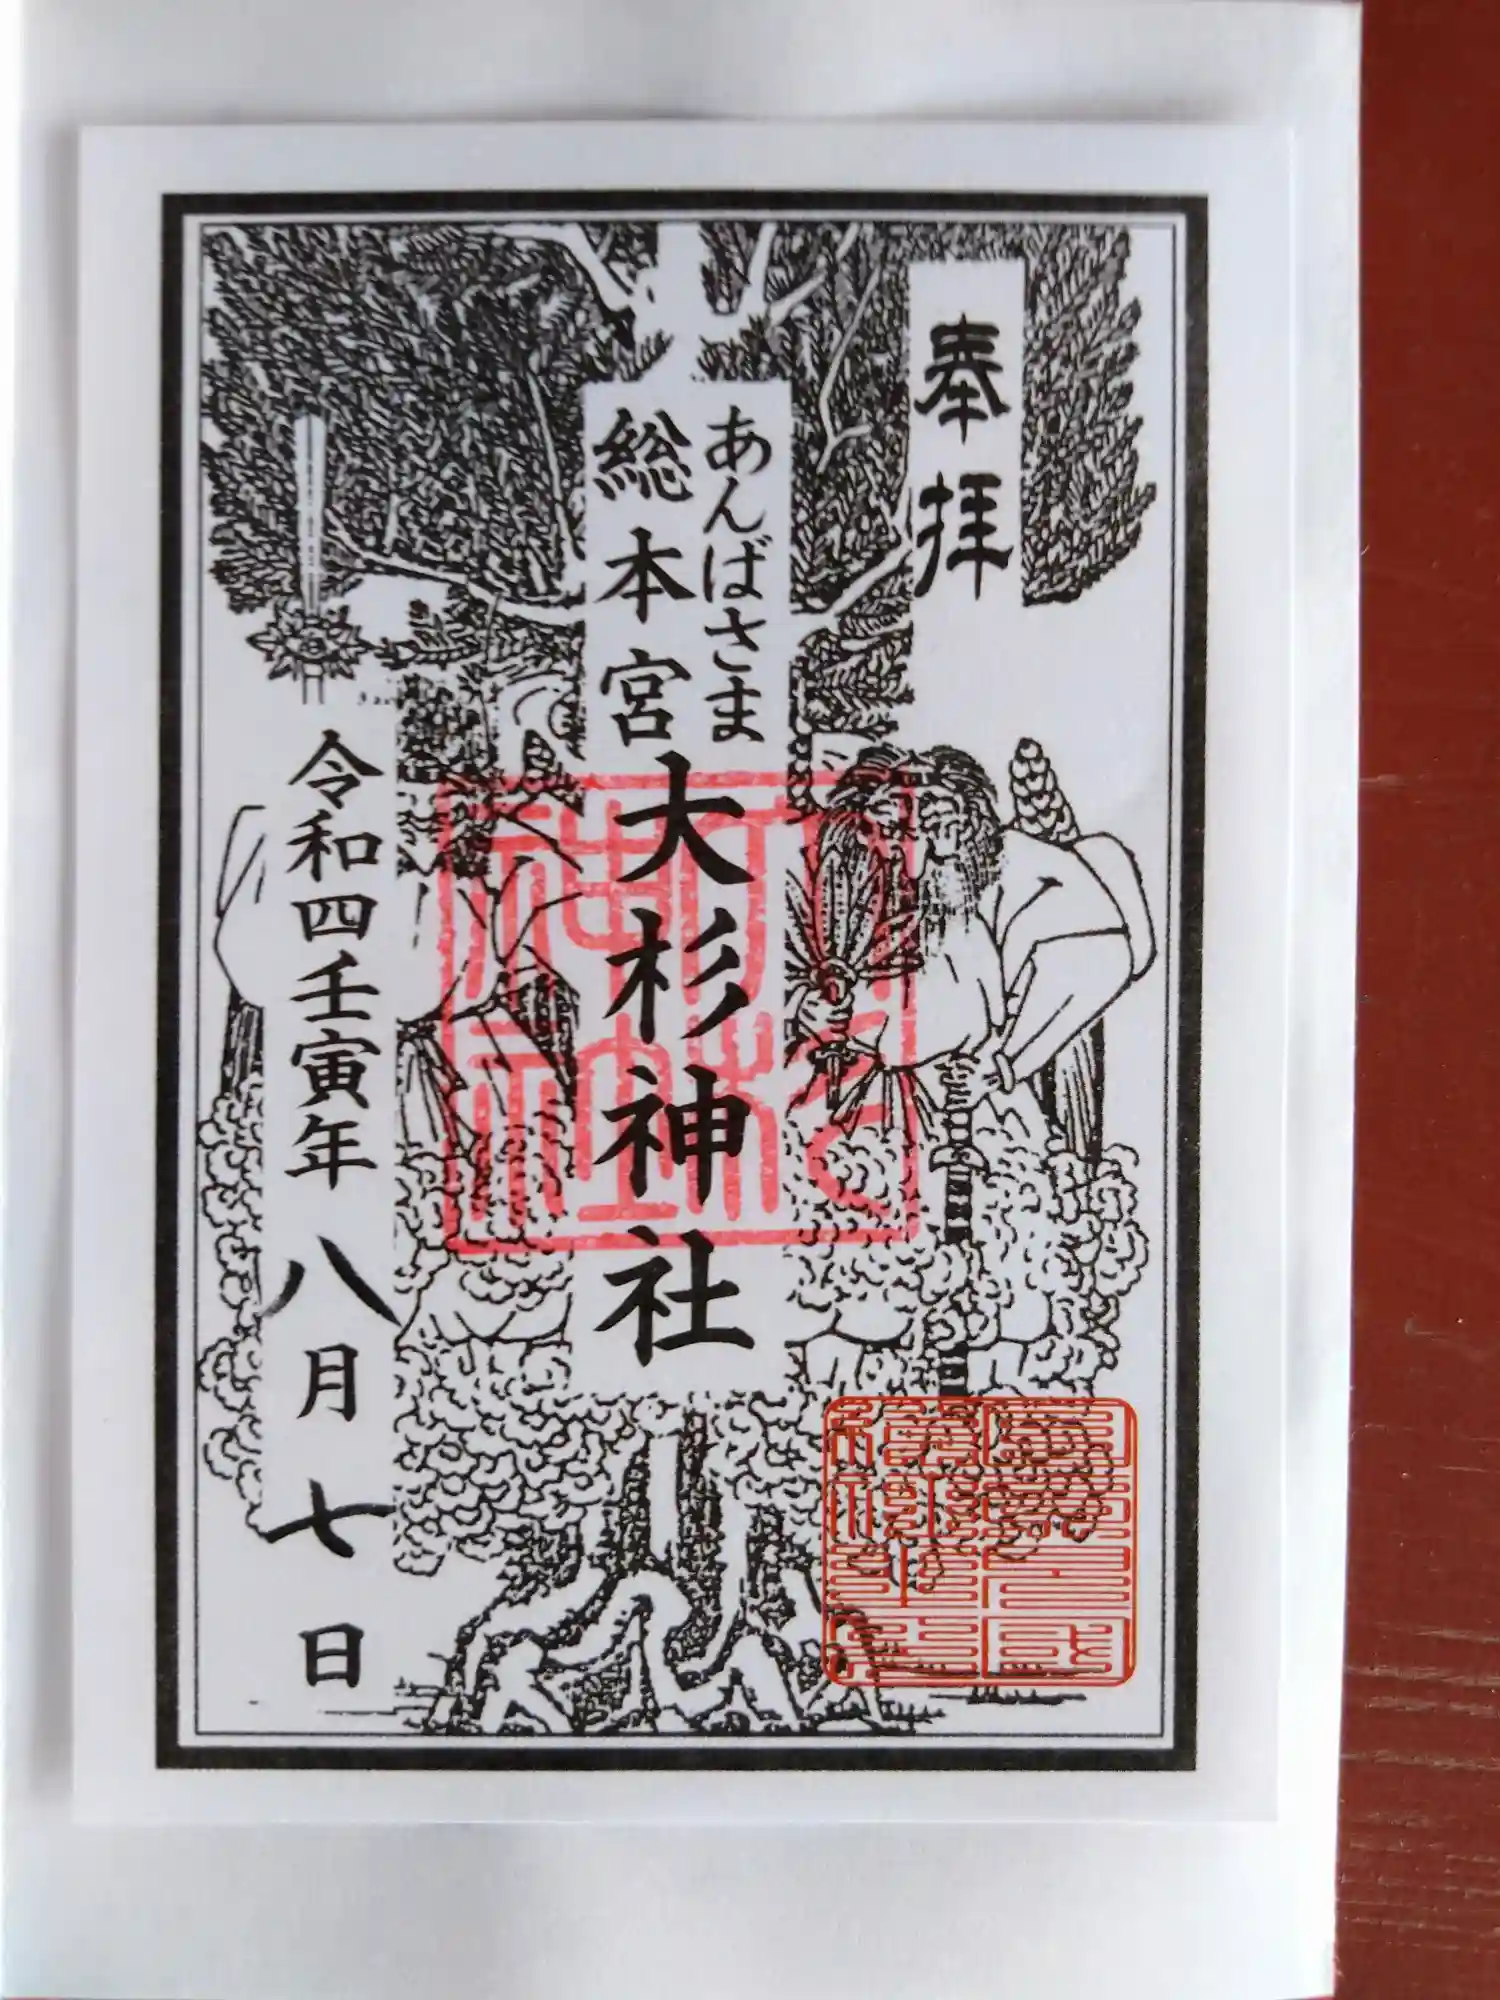 奉拝
あんばさま
総本宮大杉神社
令和四壬寅年八月七日